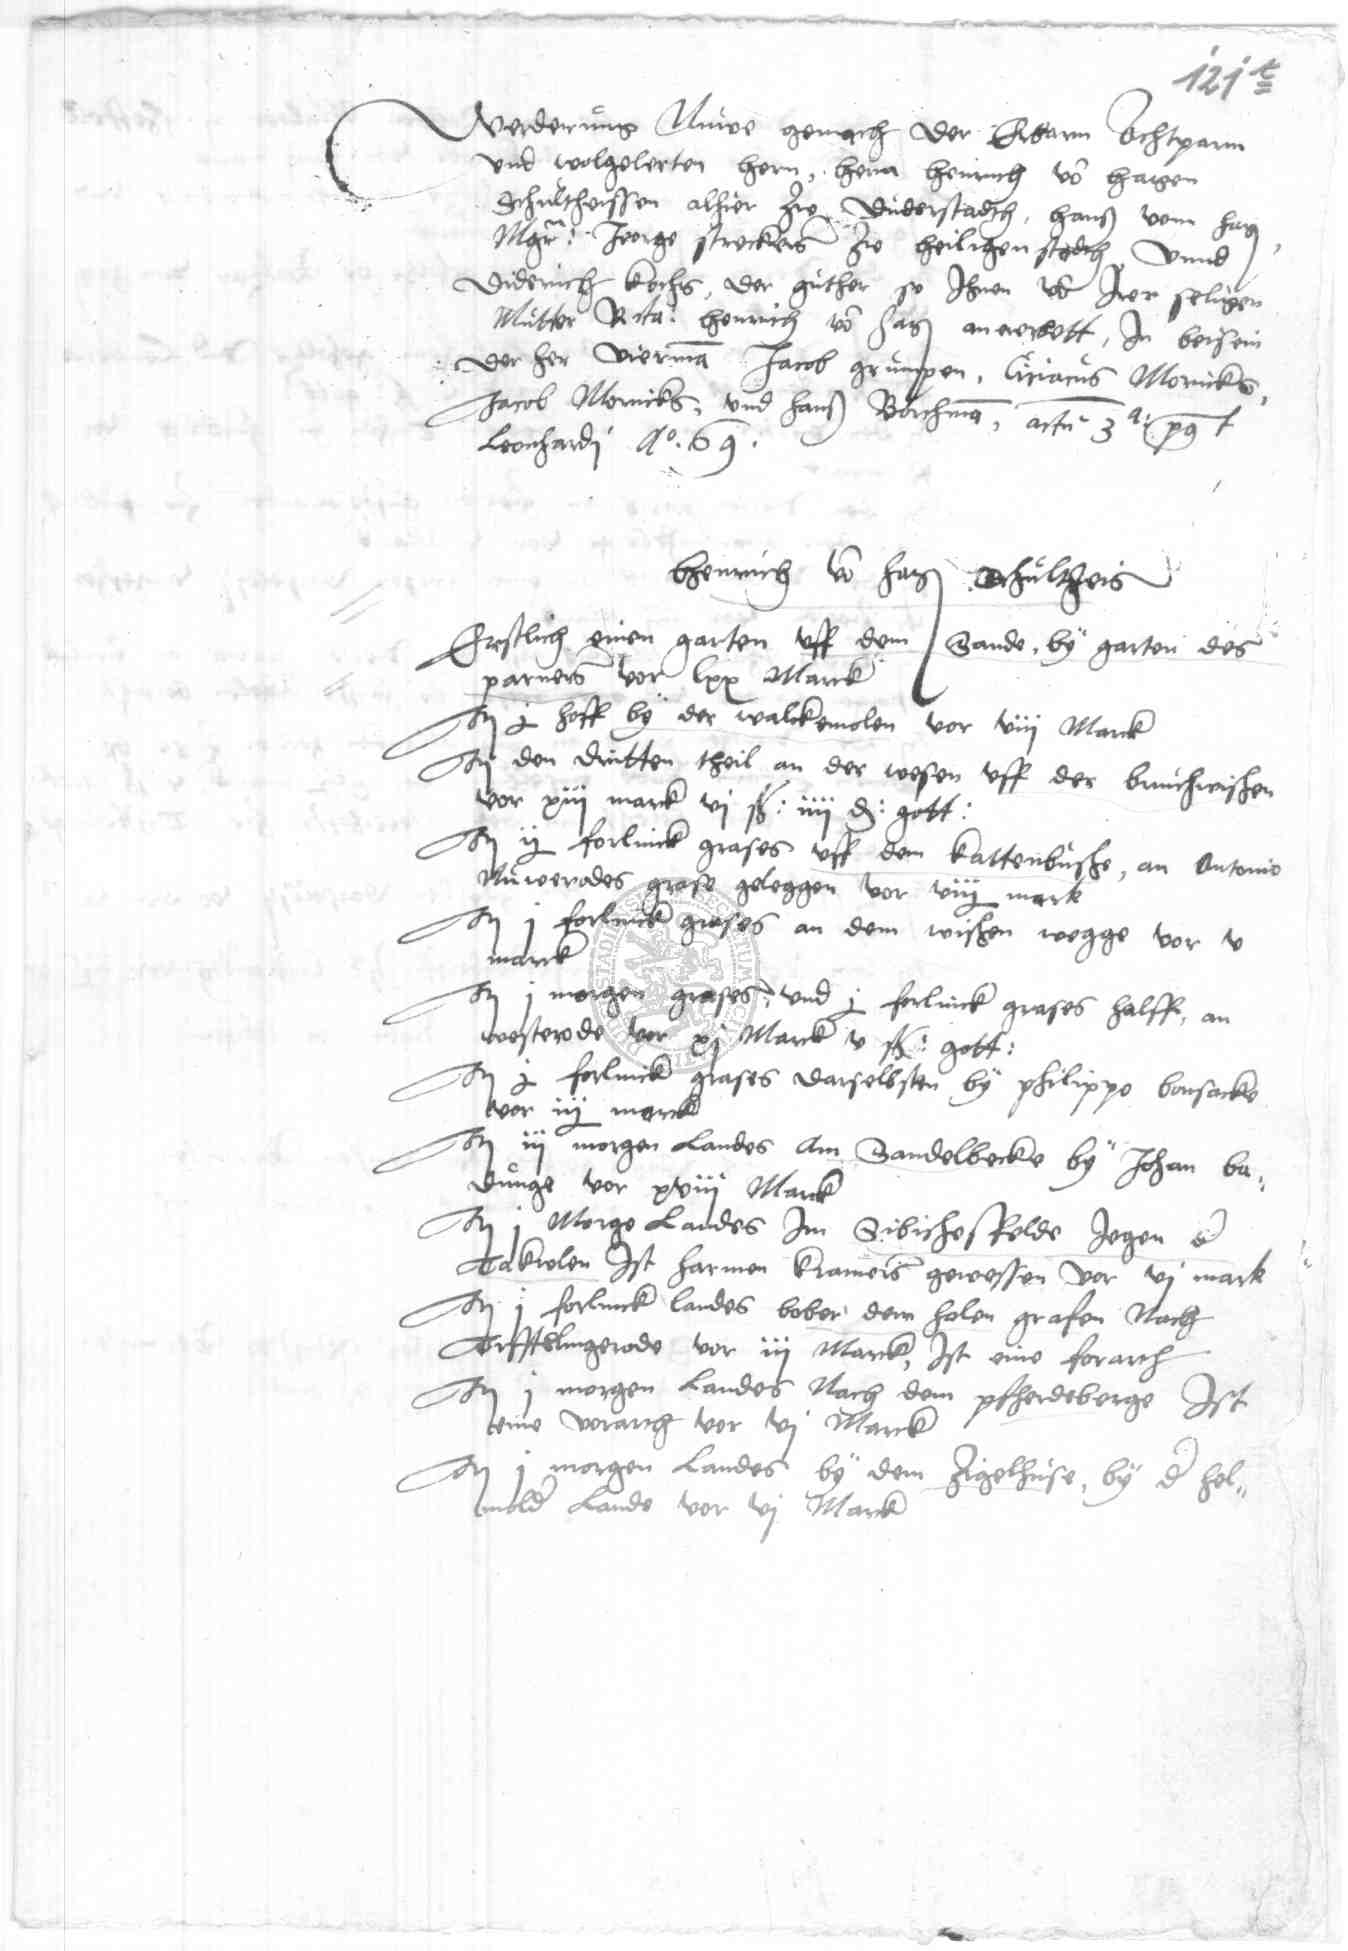 121 t
Verderung Nuwe gemach der Erbarn Achtparn
und wolgelerten hern, hern Heinrich vō Hagen
Schultheissen alhier zue Duderstadth, Hanß vom Hag,
Mgr̄: Jeorge streckers zu heiligen stadth Vnnd
Diderich kochs, der guther so Ihnen vō Irer seligen
Mutter Henrich vō Hag anererbett, In beisein
der her vierma͞ Jacob grumpen, Ciriacus Mornicks,
Jacob Mornicks, und Hanß Borchma͞, actu 3ª: post
Leonhardj Aº. 69.
Heinrich vō Hag Schultheis
Erstlich einen garten vff dem Sande, bÿ garten des
parners vor lxx Marck
It j hoff bÿ der walckemolen vor viij Marck
It den dritten theil an der wesen vff der bruchwischen
vor xiij marck vj ß: iiij d: gott:
It ij forlinck grases vff dem kattenbusche, an Antonio
Nuwerodes grase geleggen vor viij mark
It j forlinck grases an dem wischen wegge vor v
marck
It j morgen grases, vnd j forlinck grases halff, an
westerode vor xj Marck v ß: gott:
It j forlinck grases darselbsten bÿ philippo bonsacke
vor iij marck
It iij morgen Landes Am Sandelbecke bÿ Johan ba-
dunge vor xviij Marck
It j Morge Landes Im Sibichesfelde Jegen d'
Ist harmen kramers gewessen vor vj mark
It j forlinck landes bober dem holen grafen Nach
Tefftelingerode vor iij Marck, Ist eine forarth
It j morgen Landes Nach dem pferdeberge Ist
eine vorarth vor vj Marck
It j morgen Landes bÿ dem Zigelhuse, bÿ d' hel-
mold' Lande vor vj Marck